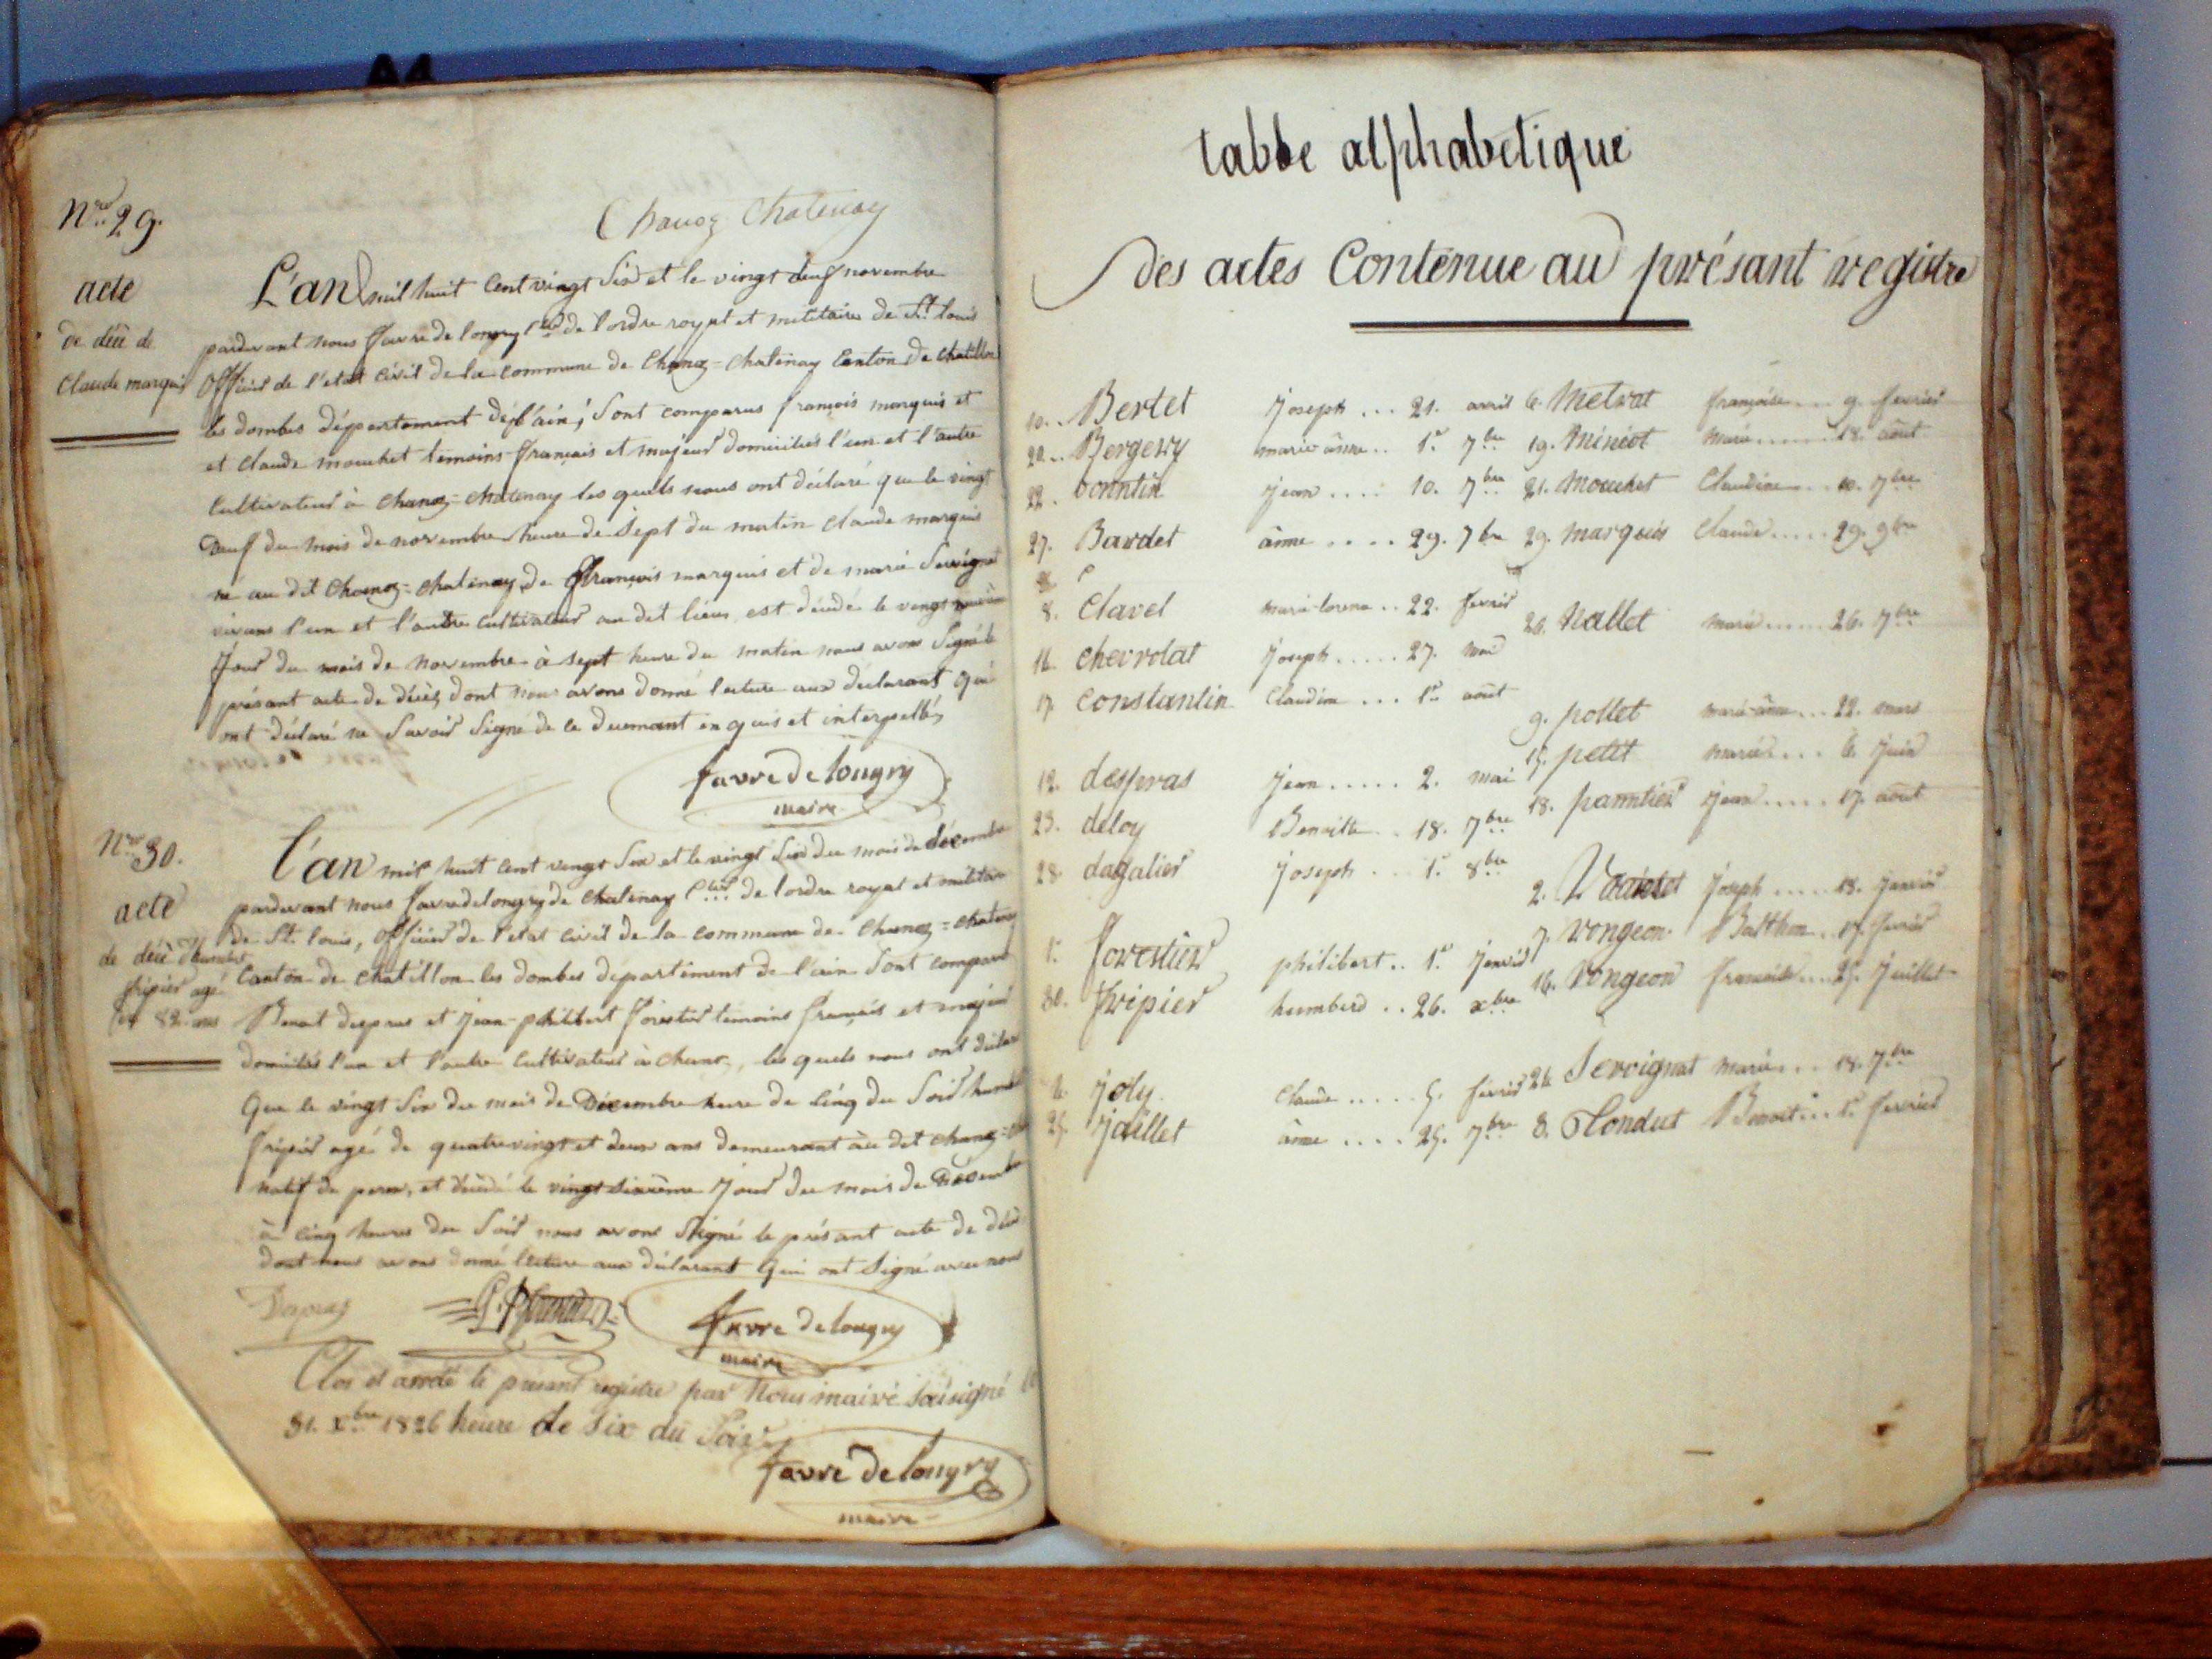 Chanoz Chatenay
Nro 29.
acte
de décè de
Claude marquis
L'an mil huit Cent vingt Six et le vingt neuf novembre
pardevant nous favre de longry de l'ordre royal et militaire de St. louis
Officier de l'etat civil de la commune de Chanoz=chatenay Canton de chatillon
les dombes département de l'ain; Sont comparus françois marquis et
et claude mouchet temoins français et majeur domiciliés l'un et l'autre
Cultivateur à Chanoz=chatenay les quels nous ont déclaré que le vingt
neuf du mois de novembre heure de sept du matin claude marquis
né au dit Chanoz=chatenay de françois marquis et de marie Servignat
vivans l'un et l'autre cultivateur au dit lieu, est décédé le vingt neuvième
Jour du mois de novembre à sept heure du matin nous avons Signé le
présant acte de décès dont nous avons donné lecture aux déclarant qui
ont déclaré ne Savoir Signé de ce duemant enquis et interpellés
favre De longry
maire
Nro 30.
acte
de décè d'humbert
fripier agé
de 82 ans
L'an mil huit cent vingt Six et le vingt Six du mois de décembre
pardevant nous favre de longry de Chatenay de l'ordre royal et militaire
de St. louis, Officier de l'etat civil de la commune de Chanoz=chatenay
Canton de chatillon les dombes département de l'ain Sont comparus
Benoit Despras et Jean-philibert forestier temoins français et majeur
domiciliés l'un et l'autre Cultivateur à chanoz, les quels nous ont déclaré
Que le vingt Six du mois de Décembre heure de Cinq du Soir humbert
fripier agé de quatrevingt et deux ans demeurant au dit chanoz=
natif de peron, et décédé le vingt sixième Jour du mois de Décembre
à cinq heures du Soir nous avons Signé le présant acte de décès
dont nous avons donné lecture aux déclarant Qui ont Signé avec nous
Despras
favre De longry
maire
Clos et arreté le présent registre par Nous maire sousigné le
31. xbre 1826 heure de six du Soir
favre De longry
maire
table alphabétique
des actes Contenue au présant registre
10. Bertet Joseph ... 21. avril
20. Bergery marie ânne .. 1er 7bre
22. bonntin Jean .... 10. 7bre
27. Bardet ânne .... 29. 7bre
8. Clavel marie-lorence .. 22. fevrier
11. chevrolat Joseph ..... 27. mai
17. constantin Claudine ... 1er août
12. despras Jean ..... 2. mai
23. deloy Benoitte .. 18. 7bre
28. dagalier Joseph ... 1er 8bre
1. forestier philibert .. 1er Janvier
30. fripier humberd .. 26. xbre
4. Joly. Claude ..... 5. fevrier
25. Jaillet ânne .... 25. 7bre
6. Metrat françoise ... 9. fevrier
19. Miniot marie ...... 18. août
21. Mouchet Claudine ... 10. 7bre
29. marquis Claude ..... 29. 9bre
26. Nallet marie ...... 26. 7bre
9. pollet marie-ânne ... 22. mars
15. petit marie ... 6. Juin
18. panntier Jean ..... 17. août
2. Joseph ..... 18. Janvier
7. vongeon Balthm .. 17. fevrier
16. vongeon françoise .... 25. Juillet
24. Servignat marie ... 18. 7bre
3. Benoit ... 1er fevrier